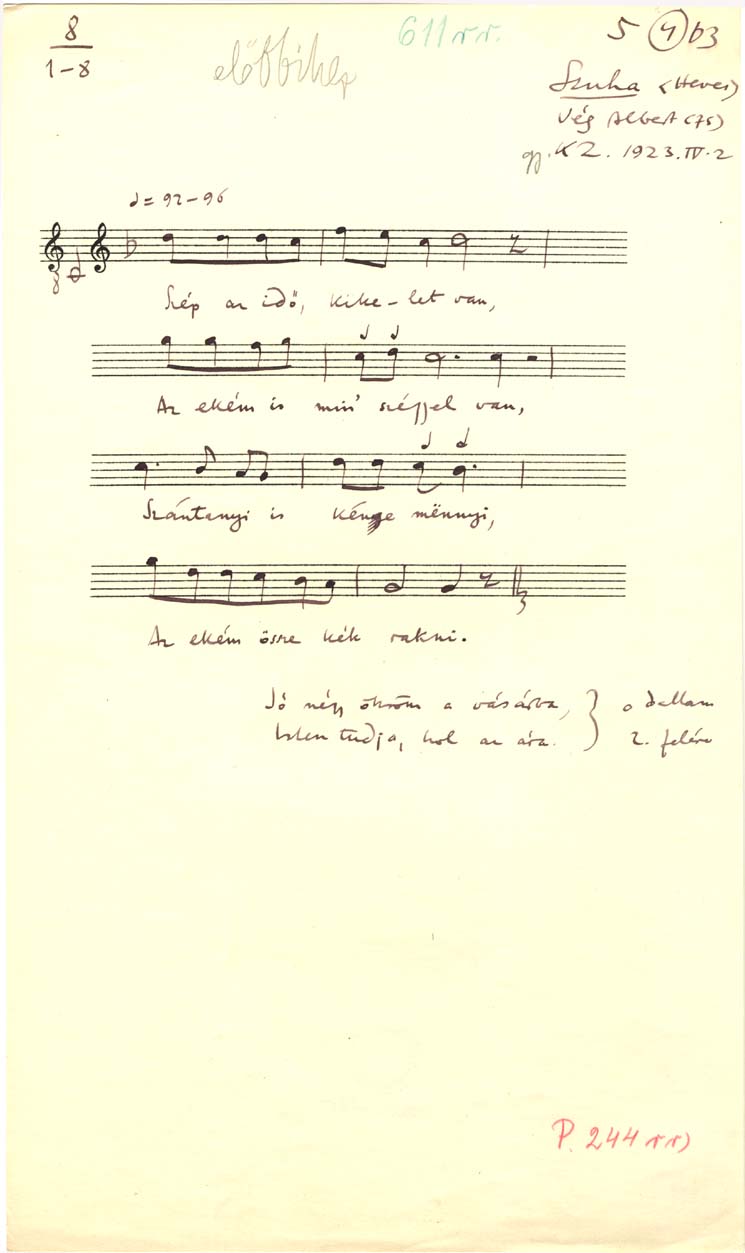 8
1-8
611 rr.
5 (4) b3
Szuha (Heves)
Vég Albert (75)
gy. KZ. 1923. IV. 2
♩ = 92-96
Szép az idő, kike-let van,
Az ekém is min' széjjel van,
Szántanyi is kénge mënnyi,
Az ekém össze kék rakni.
Jó négy ökröm a vásárba, } a dallam
Isten tudja, hol az ára. } 2. felére
P. 244 rr)